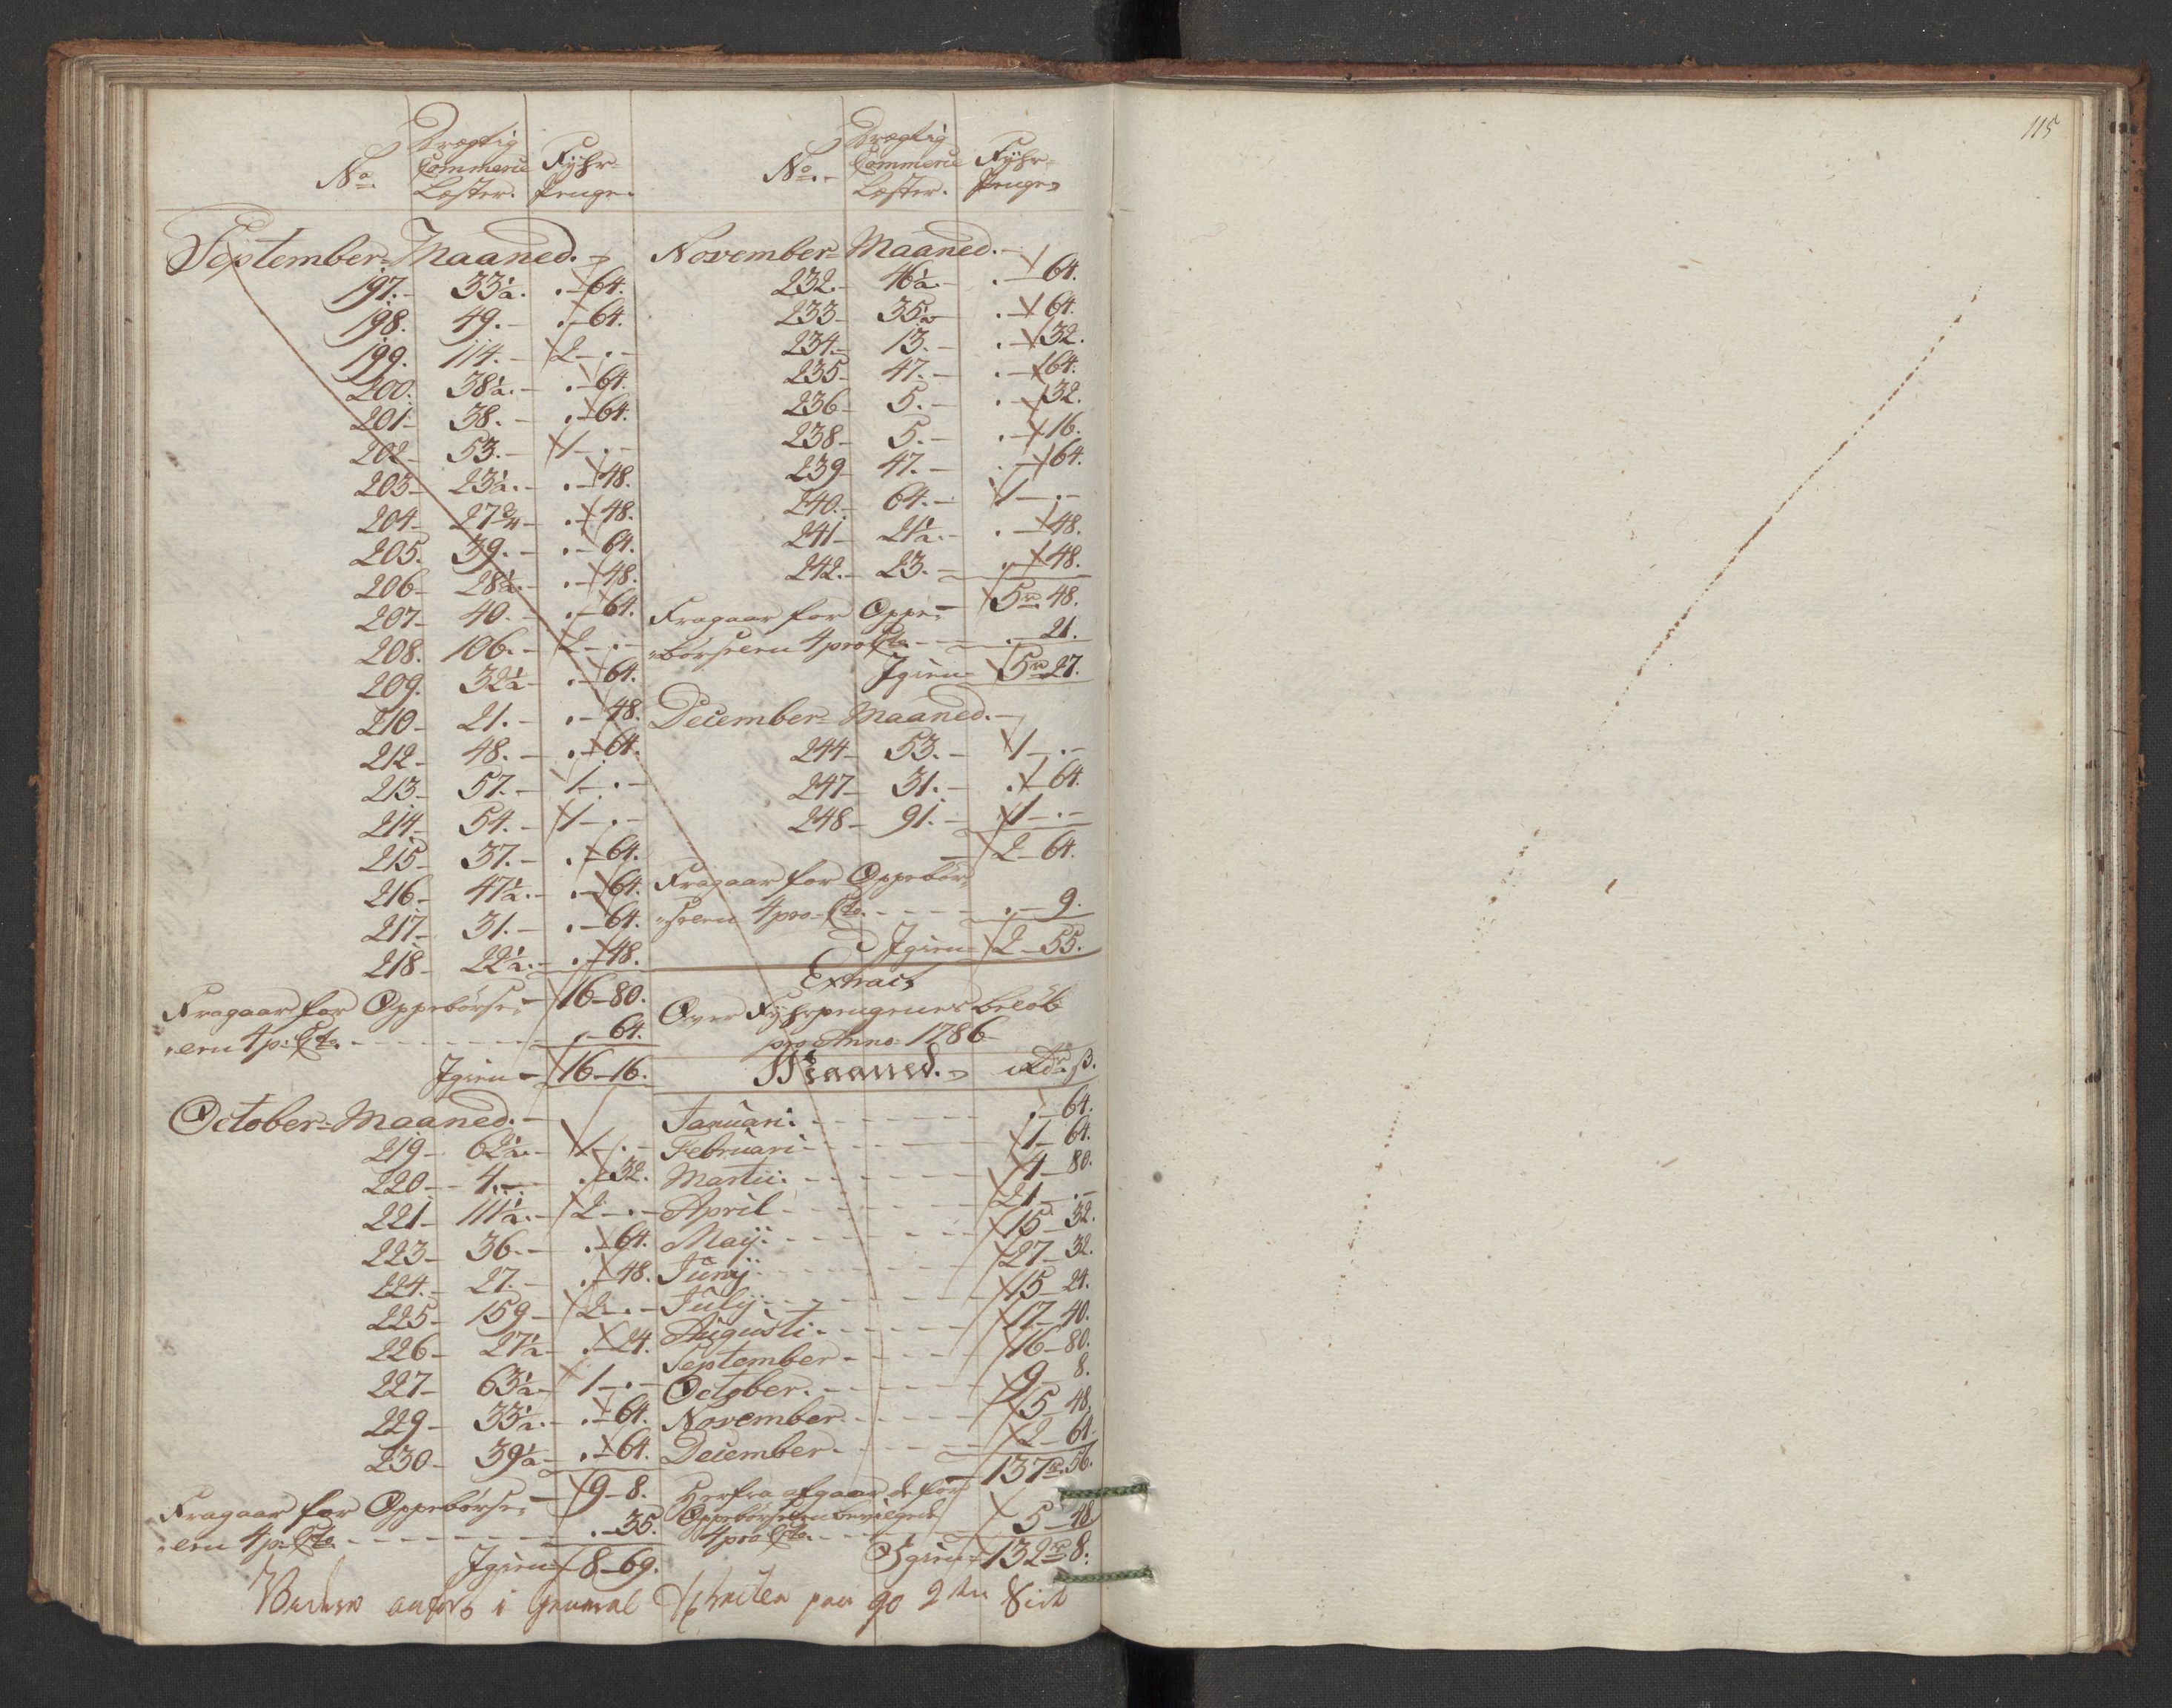 No. Drægtig Commerce Læster. Fyhr Penge.
September Maaned.
197. 33½. . 64.
198. 49. . 64.
199. 114. 2 .
200. 38½. . 64.
201. 38. . 64.
202 53. 1 .
203 23½. . 48.
204 27¾ . 48.
205. 39. . 64.
206 28½. . 48.
207 40. . 64.
208. 106. 2 .
209. 32½ . 64.
210 21. . 48.
212 48. . 64.
213 57. 1 .
214 54. 1 .
215 37. . 64.
216 47½. . 64.
217 31. . 64.
218 22½. . 48.
16 80.
Fragaar for Oppebörse-
-len 4 p: Cto. . 64.
Igien 16 16.
October Maaned.
219 62½. 1 .
220 4. . 32.
221 111½. 2 .
223 36. . 64.
224. 27. . 48.
225 159 2 .
226 27½ . 24.
227 63½ 1 .
229 33½. . 64.
230 39½ . 64.
9 8.
Fragaar for Oppebörse-
-len 4 p: Cto. . 35.
Igien 8 69.
No. Drægtig Commerce Læster. Fyhr Penge
November Maaned.
232. 46½. . 64.
233 35½ . 64.
234. 13. . 32.
235 47. . 64.
236 5. . 32.
238 5. . 16.
239 47. . 64.
240. 64. 1 .
241 21½. . 48.
242. 23. . 48.
5 rd 48.
Fragaar for Oppe-
-börselen 4 pro Cto. . 21.
Igien 5 rd 27.
December Maaned.
244 53. 1 .
247 31. . 64.
248 91. 1 .
2 64.
Fragaar for Oppebör-
-selen 4 pro Cto. . 9.
Igien 2 55.
Extract
Over Fyhrpengenes belöb
pro Anno 1786
Maaned. Rdr. ß.
Januari . 64.
Februari 1 64.
Martii 4 80.
April 21 .
Maij 15 32.
Junij 27 32.
Julij 15 24.
Augusti 17 40.
September 16 80.
October. 9 8.
November 5 48.
December. 2 64.
137 rd 56.
Herfra afgaar de for
Oppebörselen bevilgede
4 pro Cto. 5 48
Igien 132 rd 8.
anförs i General Extracten paa 90 2den Side
115